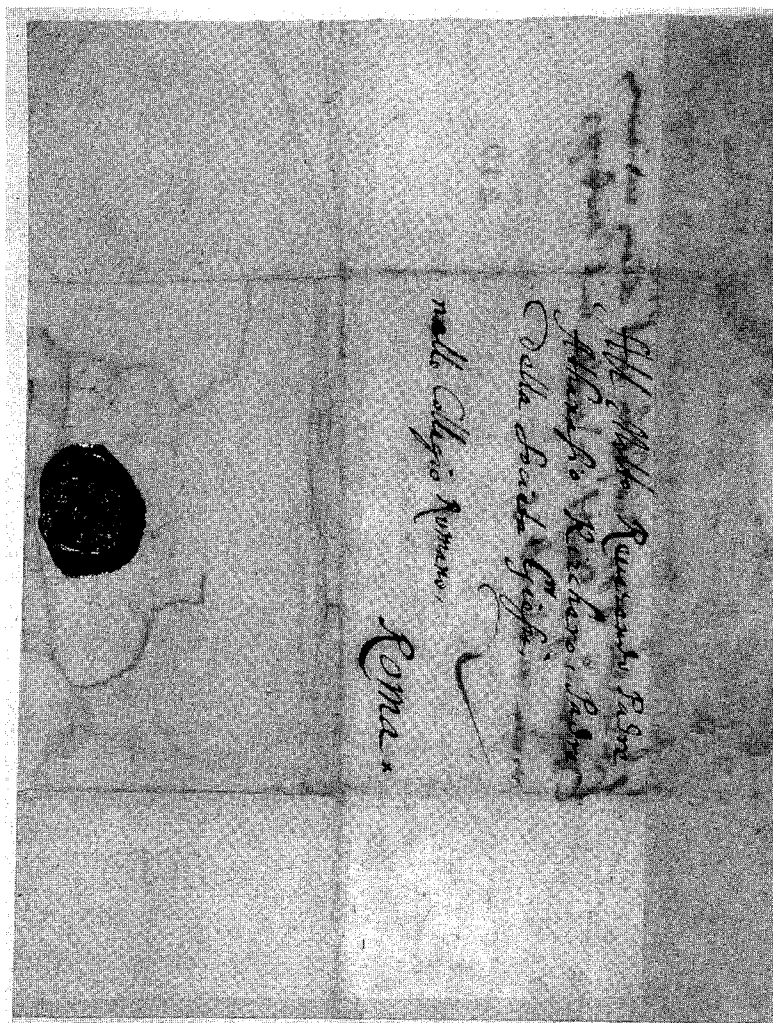 Al Molto Reverendo, Padre
Athanasio Kirchero, Padre
Della Società Giesu,
nello Collegio Romano,
Roma.